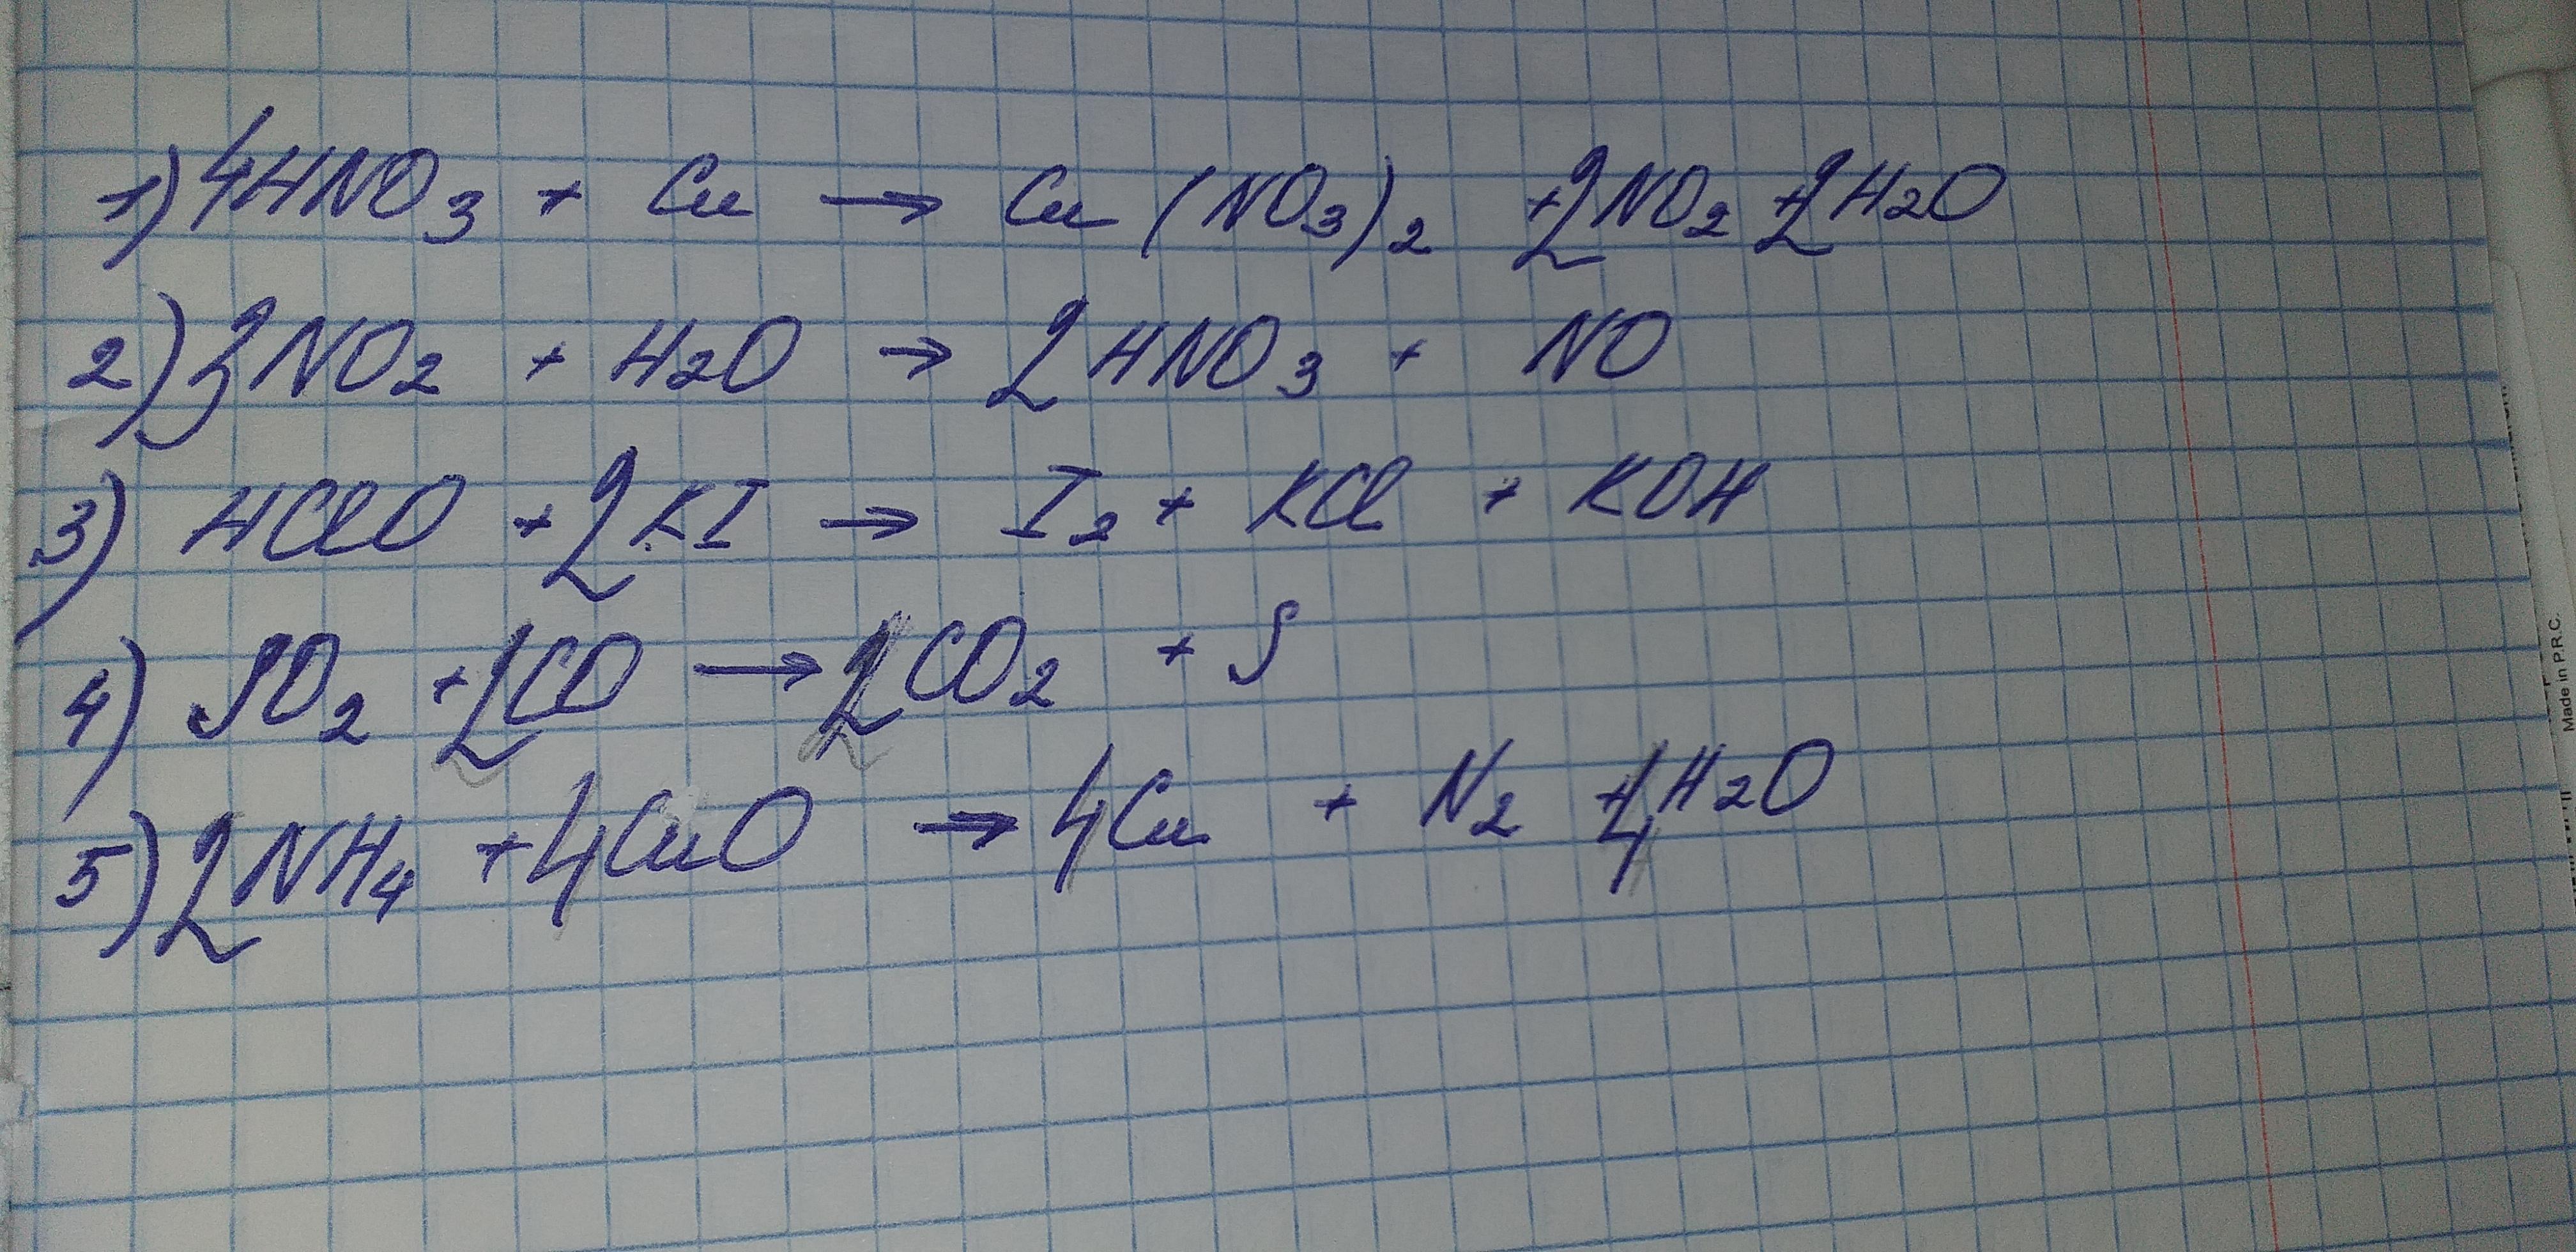 1) 4HNO3 + Cu → Cu (NO3)2 + 2NO2 + 2H2O
2) 3NO2 + H2O → 2HNO3 + NO
3) HClO + 2KI → I2 + KCl + KOH
4) SO2 + 2CO → 2CO2 + S
5) 2NH4 + 4CuO → 4Cu + N2 + 4H2O
Made in P.R.C.